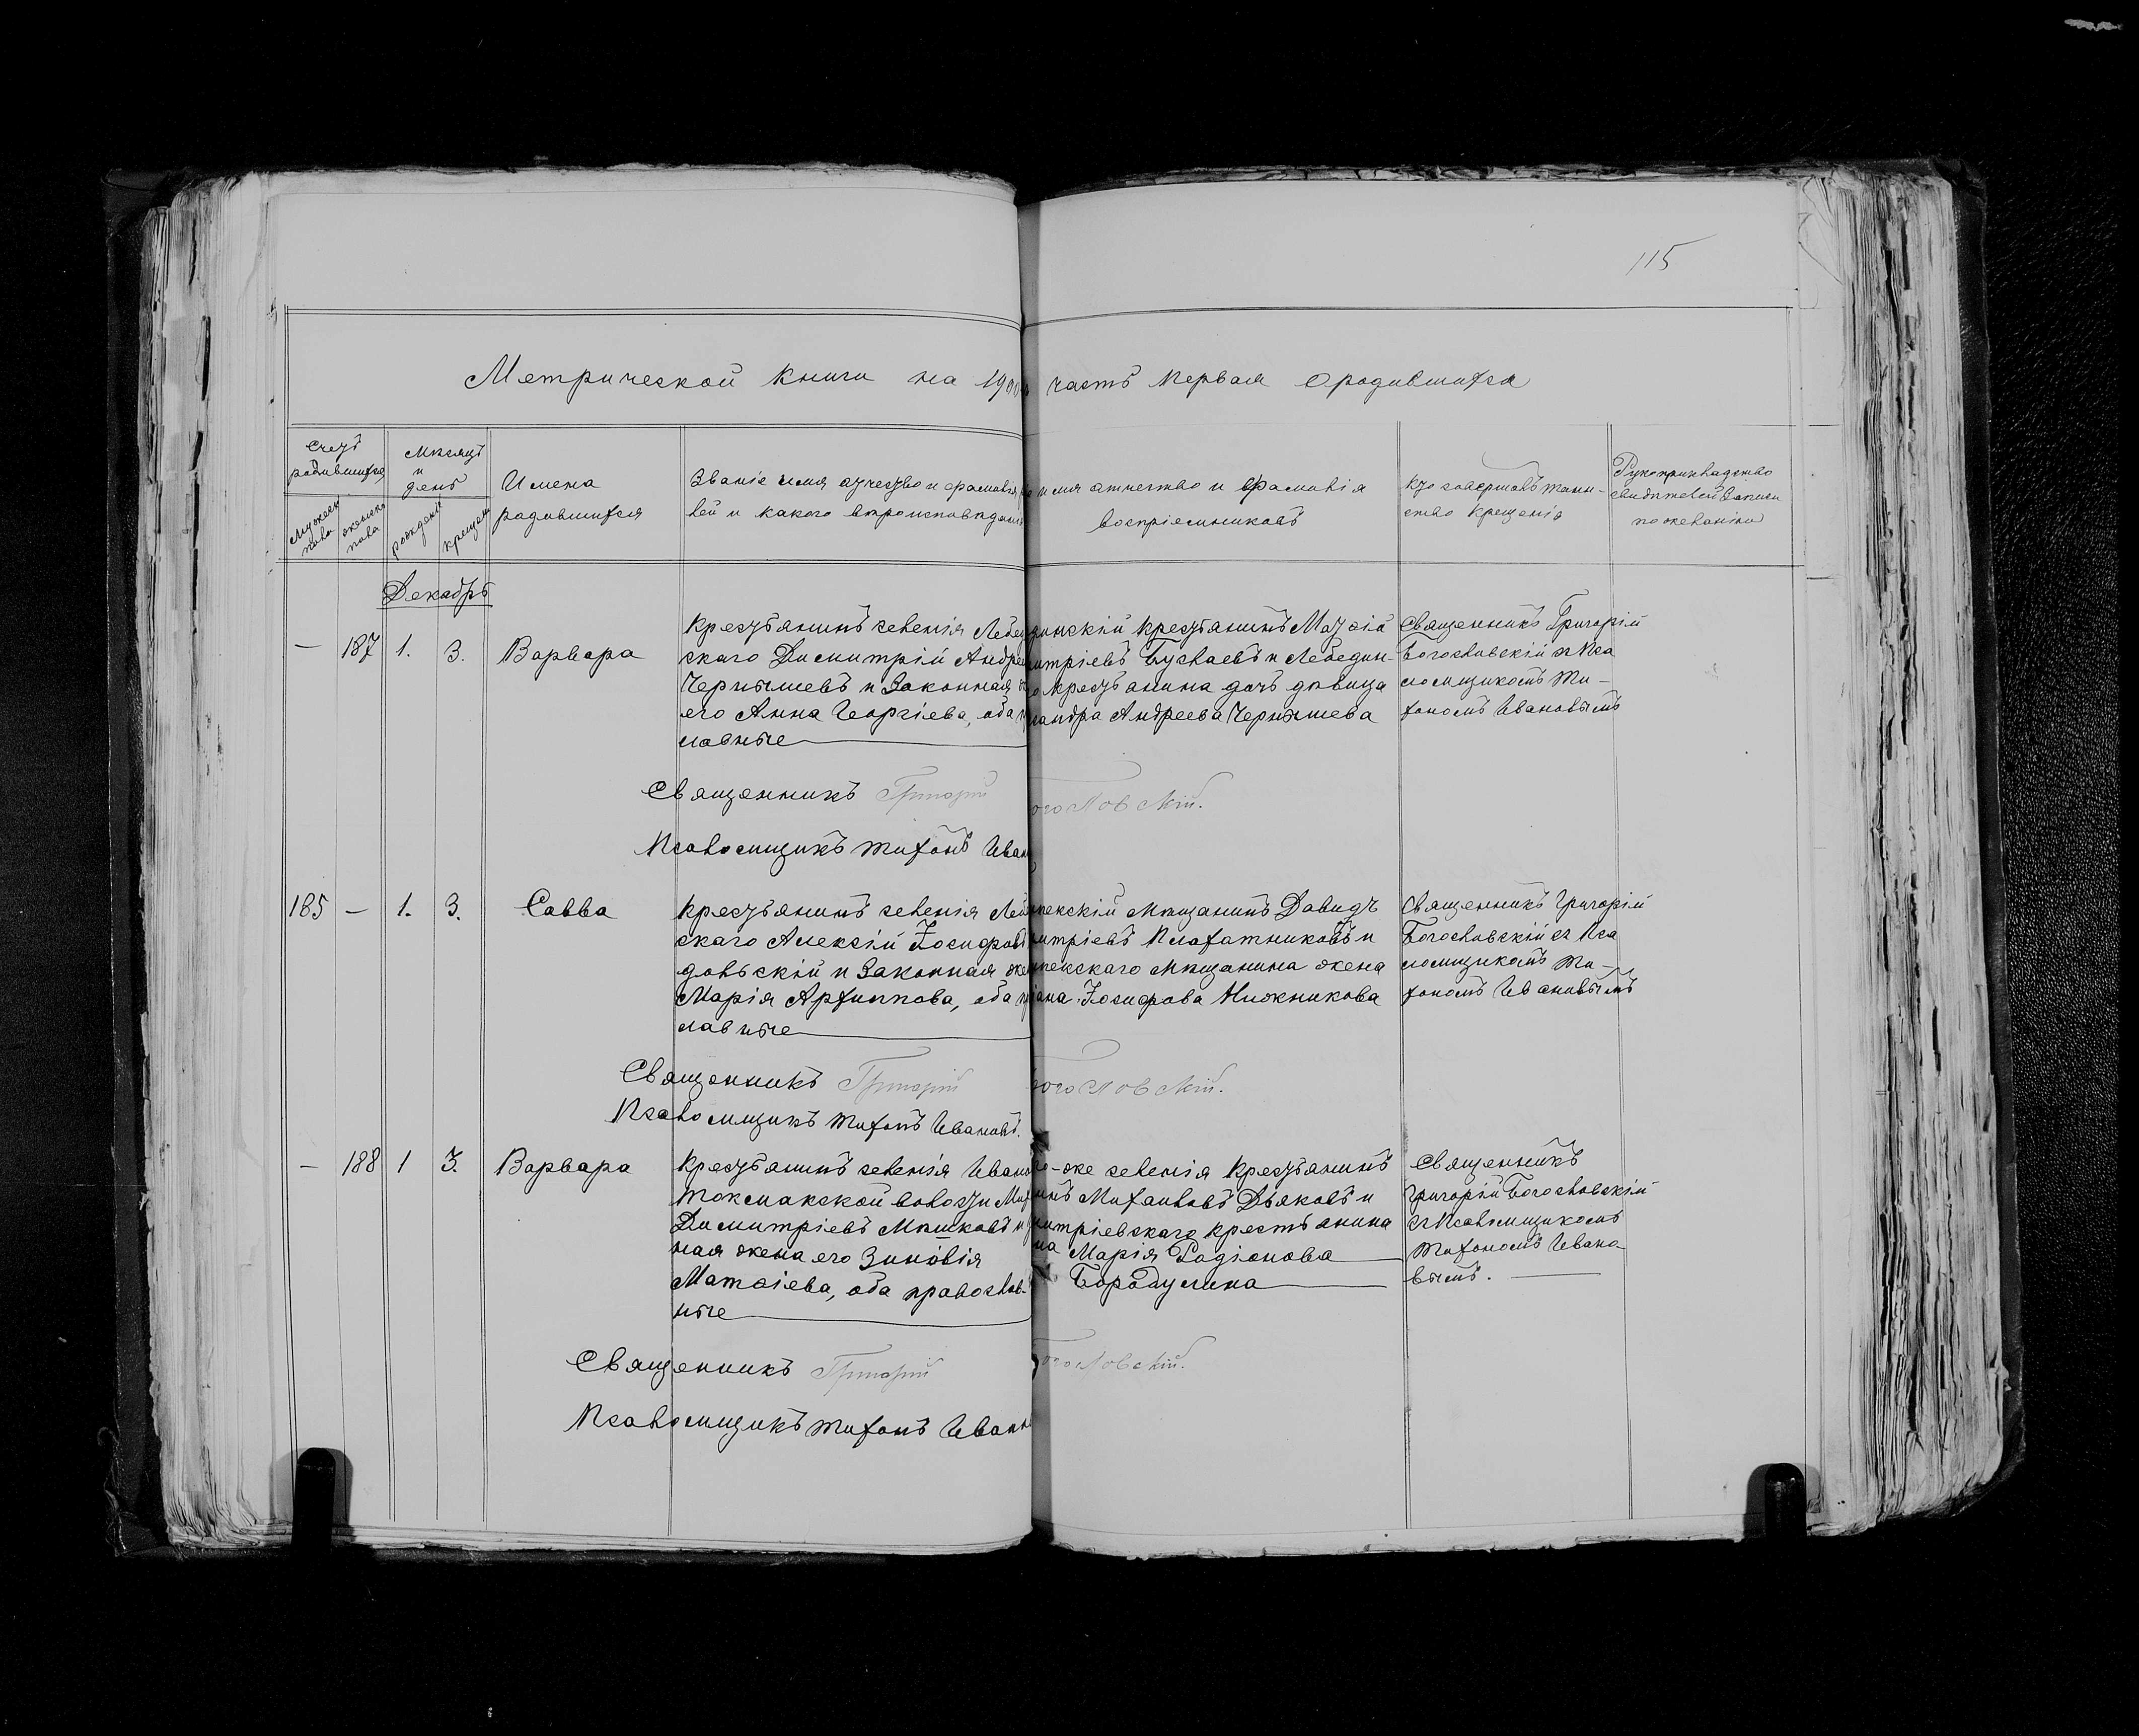 115
Метрической книги на 190 часть первая о родившихся
Счетъ родившихся
Мужеска пола
женска пола
Мѣсяцъ и день
рожденія
крещенія
Имена
родившихся
Званіе имя отчество и фамилія
лей и какого вѣроисповѣданія
имя отчество и фамилія
воспріемниковъ
Кто совершалъ таин-
ство крещенія
Рукоприкладство
свидѣтелей записи
по желанію
Декабрь
— 187 1. 3. Варвара
Крестьянинъ селенія Лебед
скаго Димитрій Андре
Чернышевъ и законная
его Анна Георгіева, оба
лавные
инскій крестьянинъ Матѳій
итріевъ Буслаевъ и Лебедин-
крестьянина дочь дѣвица
сандра Андреева Чернышева
Священникъ Григорій
Богословскій и Пса
ломщикомъ Ти-
хономъ Ивановымъ
Священникъ Григорій Богословскій.
Псаломщикъ Тихонъ Иван
185 — 1. 3. Савва
Крестьянинъ селенія Леб
скаго Алексій Іосифовъ
довскій и законная же
Марія Архипова, оба п
лавные
пекскій мѣщанинъ Давидъ
итріевъ Плохатниковъ и
пекскаго мѣщанина жена
Іосифова Нижникова
Священникъ Григорій
Богословскій съ Пса
ломщикомъ Ти-
хономъ Ивановымъ
Священникъ Григорій Богословскій.
Псаломщикъ Тихонъ Ивановъ.
— 188 1 3. Варвара
Крестьянинъ селенія Ивано
Токмакской волости Ми
Димитріевъ Мѣшковъ и
ная жена его Зиновія
Матѳіева, оба православ-
ные
-же селенія крестьянинъ
Михаиловъ Дьяковъ и
итріевскаго крестьянина
на Марія Родіонова
Бородулина
Священникъ
Григорій Богословскій
съ Псаломщикомъ
Тихономъ Ивано
вымъ.
Священникъ Григорій Богословскій.
Псаломщикъ Тихонъ Иван